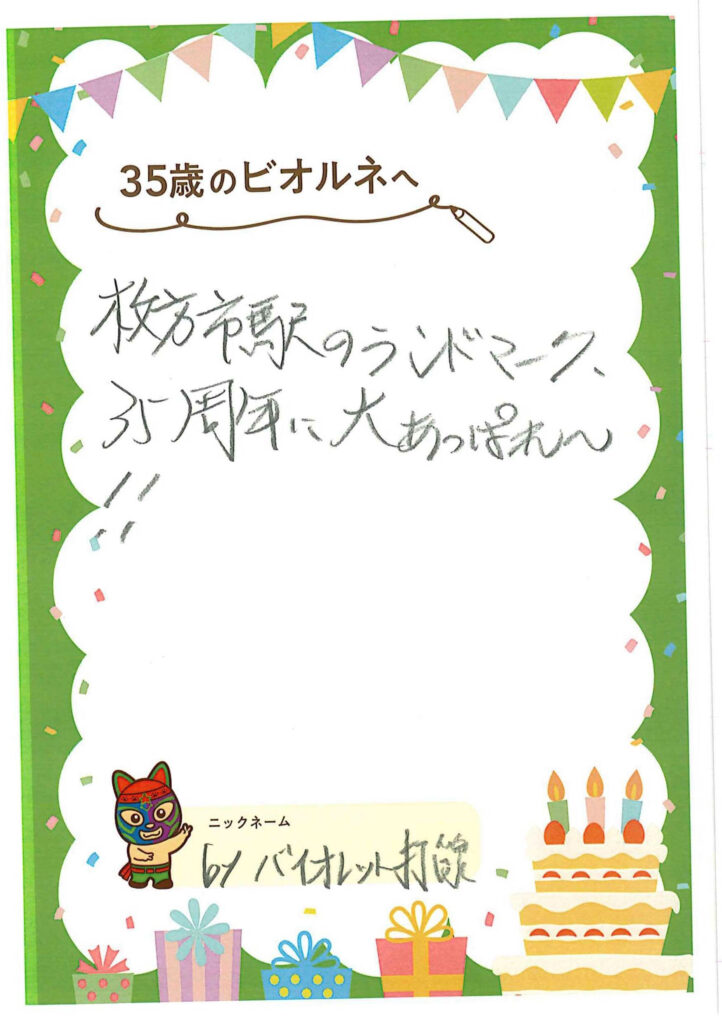 35歳のビオルネへ
枚方市駅のランドマーク、
35周年に大あっぱれ〜
!!
ニックネーム
by バイオレット打線